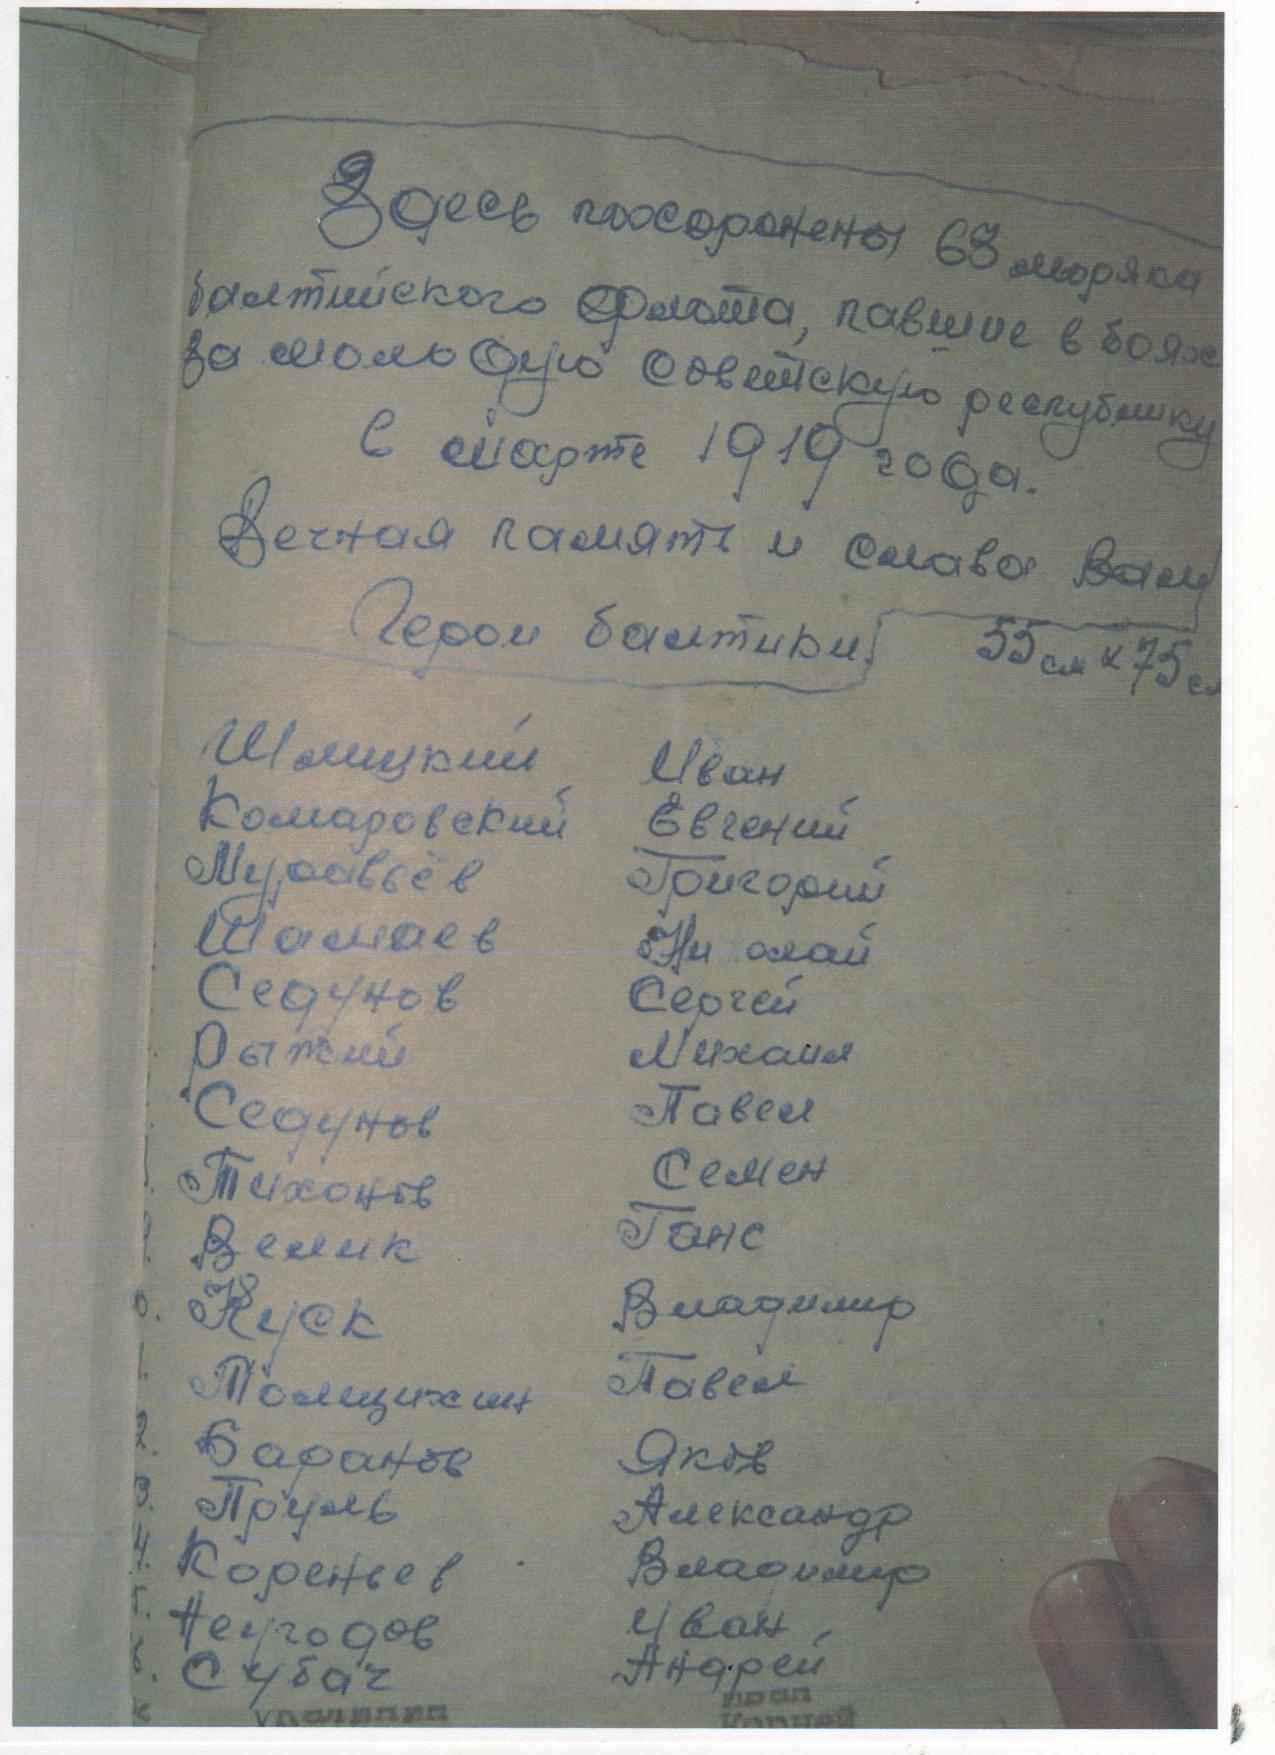 Здесь похоронены 63 моряка
балтийского флота, павшие в боях
за молодую советскую республику
в марте 1919 года.
Вечная память и слава Вам
Герои балтики.
55см х 75см
Шлицкий Иван
Комаровский Евгений
Муравьёв Григорий
Шамаев Ни олай
Седунов Сергей
Рыжий Михаил
Седунов Павел
Тихонов Семен
9. Велик Ганс
0. Куск Владимир
1. Толщихин Павел
2. Баранов Яков
3. Пруль Александр
4. Кореньев Владимир
5. Неугодов Иван
6. Субач Андрей
Иван
Корней